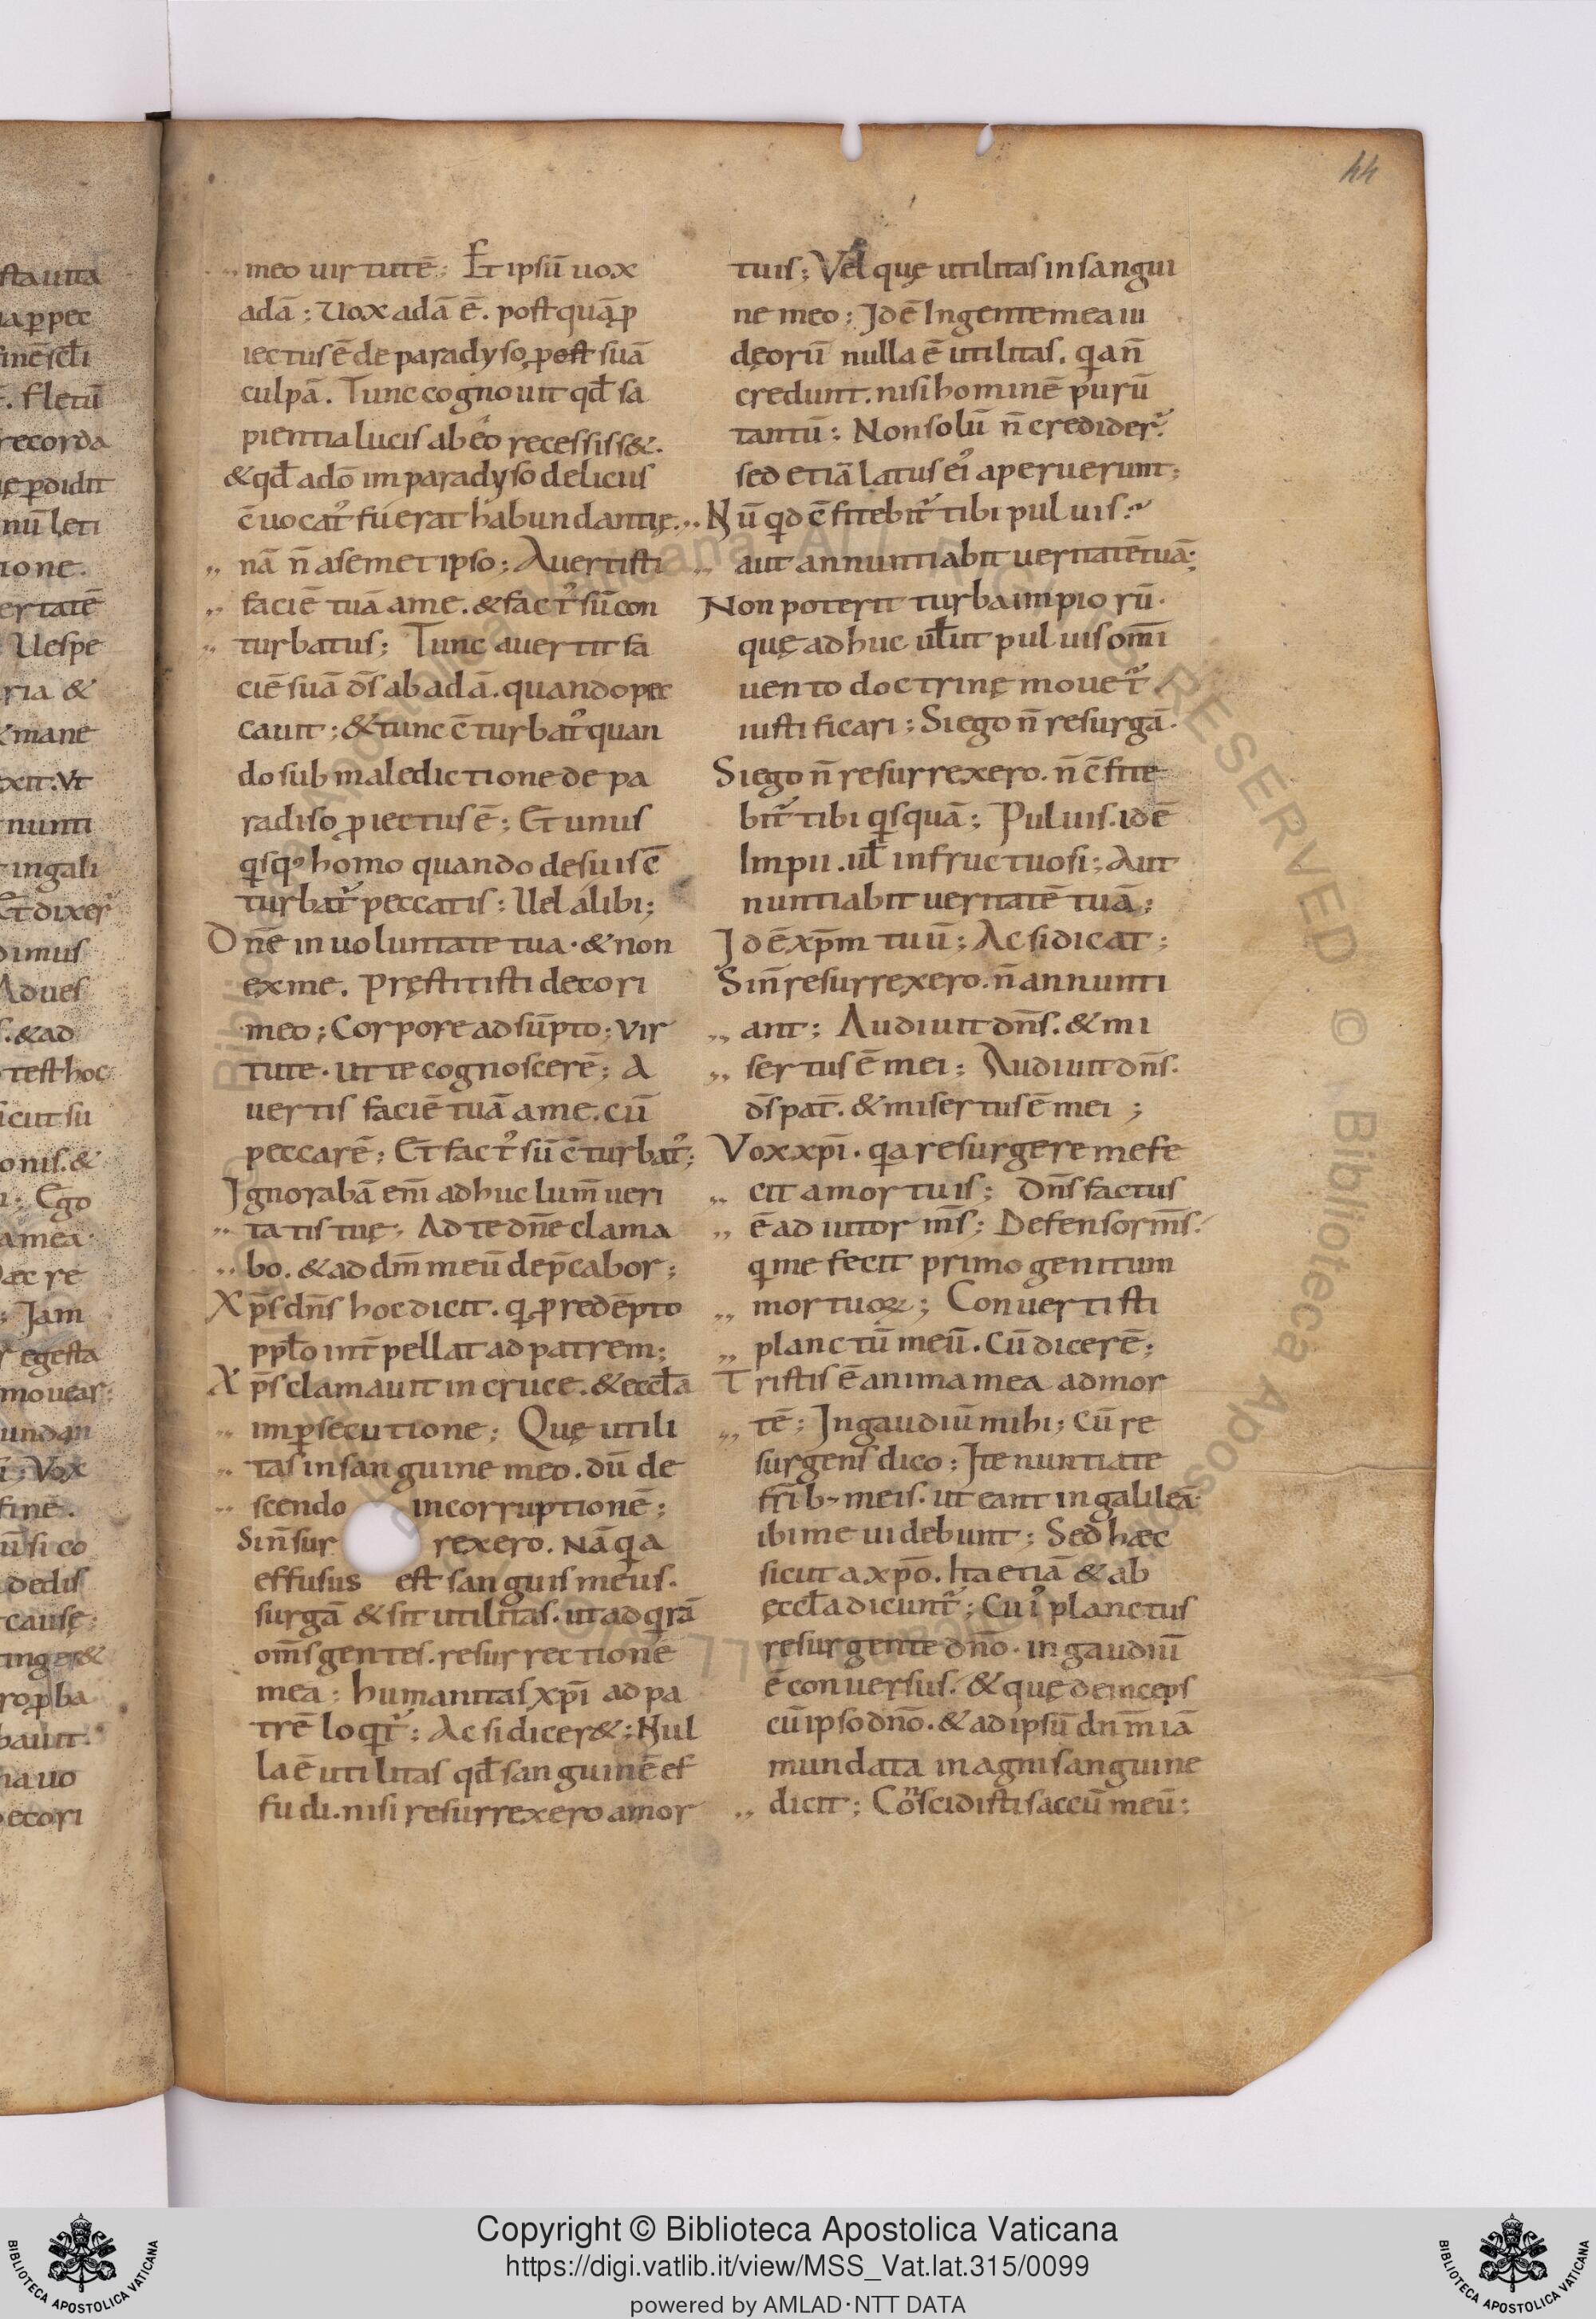 44
meo uirtutē; Et ipsū uox
adā; uox adā ē. postquā p
iectus ē de paradyso, post suā
culpā. Tunc cognouit qđ sa
pientia lucis ab eo recessiss&.
& qđ adō im paradyso delicus
c̄uocat᾽ fuerat habundantię.
nā n̄ asemet ipso; Auertisti
faciē tuā ame. & fact᾽ sū con
turbatus; Tunc auertit fa
ciē suā d̄s ab adā. quando pec
cauit; & tunc c̄turbat᾽ quan
do sub maledictione de pa
radiso piectus ē; Et unus
qisq᾽ homo quando de suis c̄
turbat᾽ peccatis; Uel álibi;
Dn̄e in uoluntate tua. & non
ex me. Pręstitisti decori
meo; Corpore adsūpto; vir
tute. ut te cognoscerē; A
uertis faciē tuā ame. cū
peccarē; Et fact᾽ sū c̄turbat᾽;
Ignorabā enī adhuc lum̄ ueri
tatis tuę; Ad te dn̄e clama
bo. & ad dm̄ meū dep̄cabor;
Xp̄s dn̄s hoc dicit. q p redēpto
ppło int̄pellat ad patrem;
Xp̄s clamauit in cruce. & eccła
im psecutione; Quę utili
tas in sanguine meo. dū de
scendo incorruptionē;
Si n̄ sur rexero. Nā qa
effusus est sanguis meus.
surgā & sit utilitas. ut adqirā
om̄s gentes. resurrectione
mea; humanitas xp̄i ad pa
trē loqit᾽; Ac si dicer&; Nul
la ē utilitas qđ sanguinē ef
fudi. nisi resurrexero amor
tuis; Vel quę utilitas in sangui
ne meo; Id ē In gente mea iu
dęorū nulla ē utilitas. qa n̄
credunt. nisi hominē purū
tantū; Non solū n̄ credider᾽.
sed etiā latus ei᾽ aperuerunt;
Nū qd c̄fitebit᾽ tibi puluis;
aut annuntiabit ueritatē tuā;
Non poterit turba impiorū.
quę adhuc uł ut puluis om̄i
uento doctrinę mouet᾽.
iustificari; Si ego n̄ resurgā.
Si ego n̄ resurrexero. n̄ c̄fite
bit᾽ tibi qisquā; Puluis. id ē
Impii. uł infructuosi; Aut
nuntiabit ueritatē tuā;
Id ē xp̄m tuū; Ac si dicat;
Si n̄ resurrexero. n̄ annunti
ant; Audiuit dn̄s. & mi
sertus ē mei; Audiuit dn̄s.
d̄s pat̄. & misertus ē mei;
Vox xp̄i. qa resurgere me fe
cit amortuis; Dn̄s factus
ē adiutor m̄s; Defensor m̄s.
q me fecit primogenitum
mortuoꝝ; Conuertisti
planctū meū. Cū dicerē;
Tristis ē anima mea ad mor
tē; In gaudiū mihi; Cū re
surgens dico; Ite nuntiate
fr̄ib; meis. ut eant in galileā.
ibi me uidebunt; Sed hæc
sicut a xp̄o. Ita etiā & ab
ęccła dicunt᾽; Cui᾽ planctus
resurgente dn̄o. in gaudiū
ē conuersus. & quę deinceps
cū ipso dn̄o. & ad ipsū dnm̄ iā
mundata in agni sanguine
dicit; Conscidisti saccū meū;
Copyright © Biblioteca Apostolica Vaticana
https://digi.vatlib.it/view/MSS_Vat.lat.315/0099
powered by AMLAD·NTT DATA